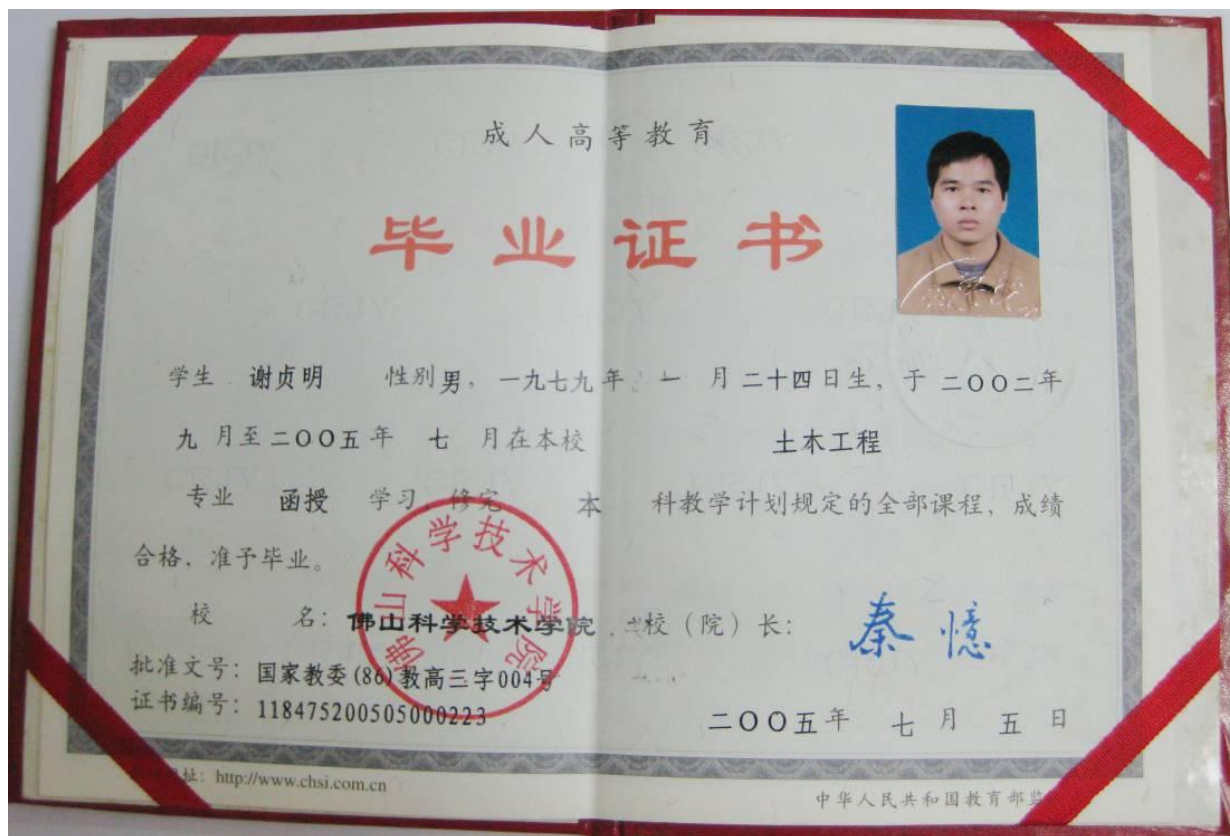 成人高等教育
毕业证书
学生 谢贞明 性别男，一九七九年 一 月二十四日生，于二〇〇二年
九 月至二〇〇五年 七 月在本校 土木工程
专业 函授 学习，修完 本 科教学计划规定的全部课程，成绩
合格，准予毕业。
校 名：佛山科学技术学院 校（院）长：秦憶
佛山科学技术学院
批准文号：国家教委(86)教高三字004号
证书编号：118475200505000223
二〇〇五年 七 月 五 日
址：http://www.chsi.com.cn
中华人民共和国教育部监